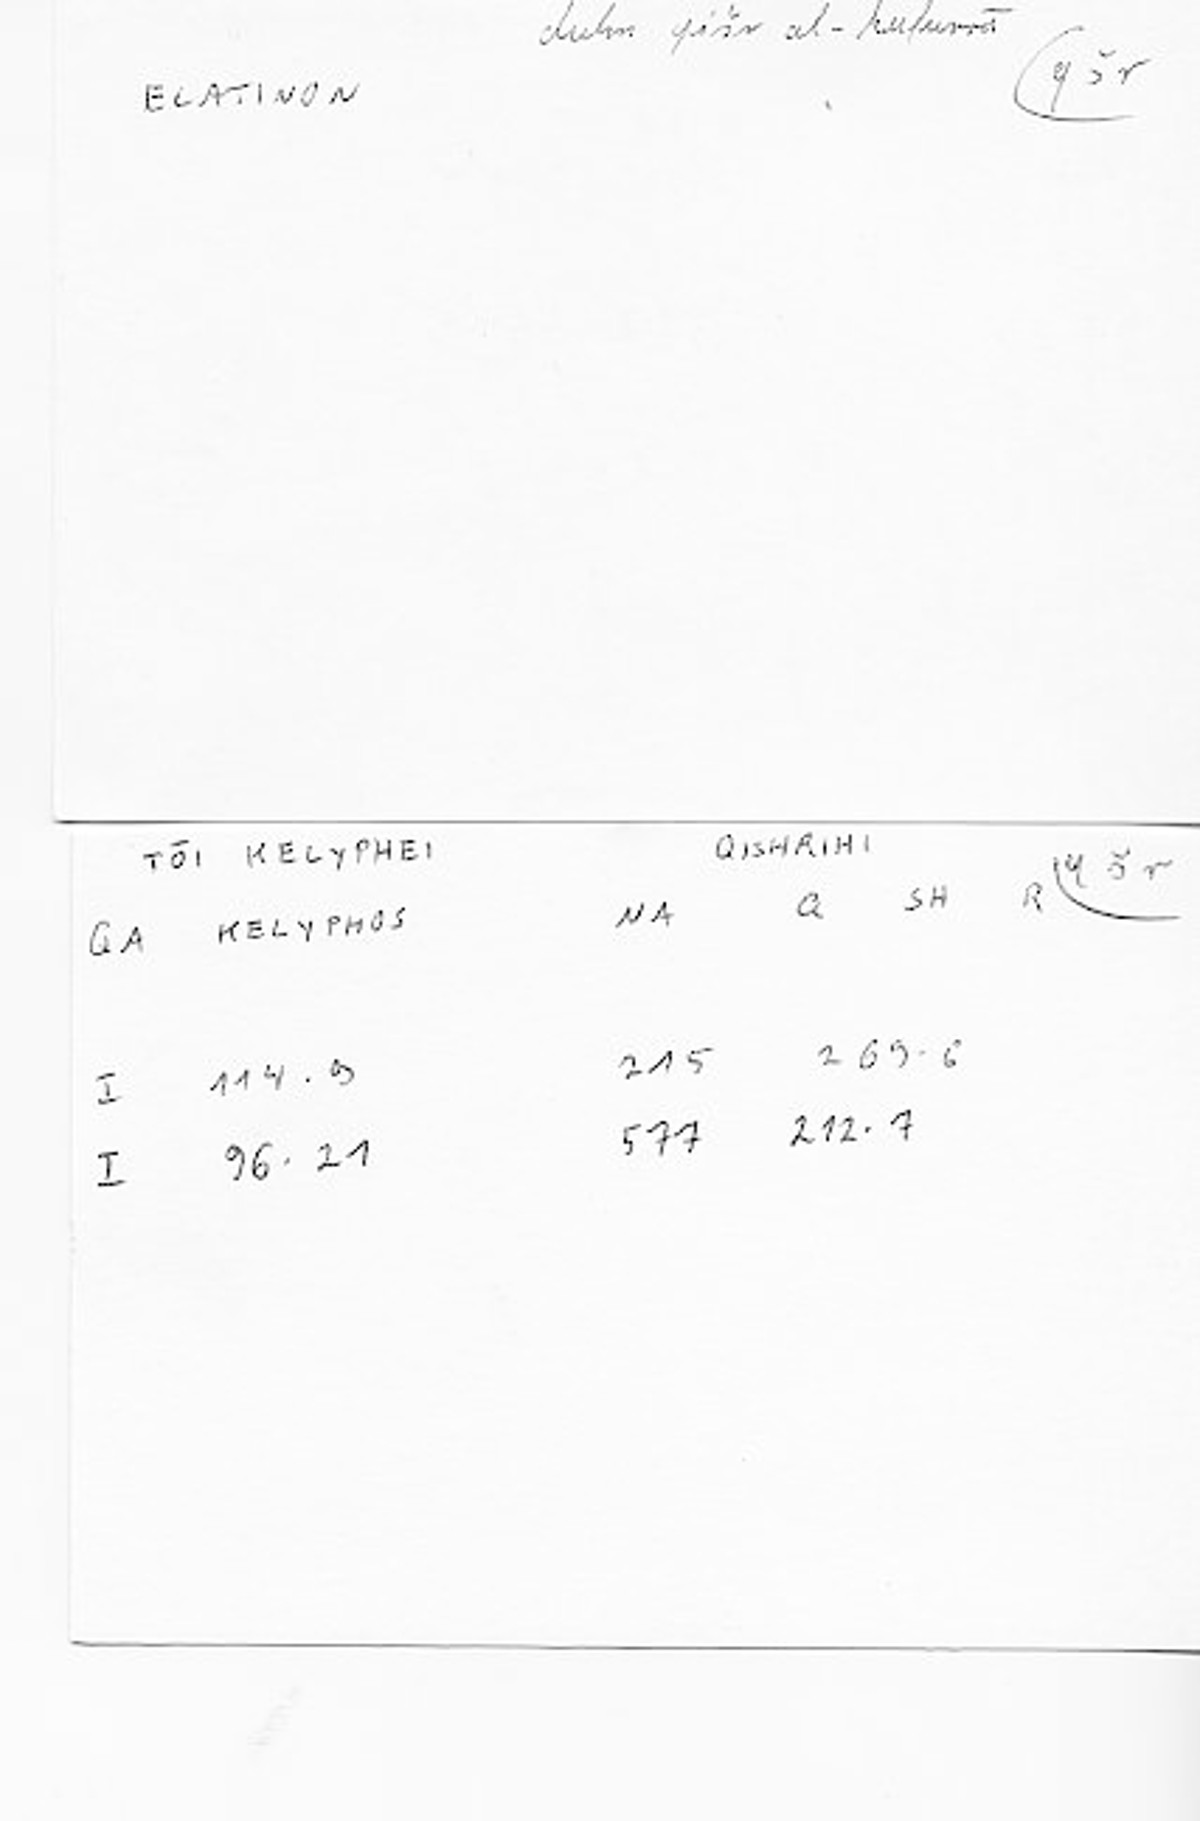 duhn qišr al-kufurrā
qšr
ELATINON
TŌI KELYPHEI QISHRIHI qšr
QA KELYPHOS NA Q SH R
I 114.9 215 269.6
I 96.21 577 212.7